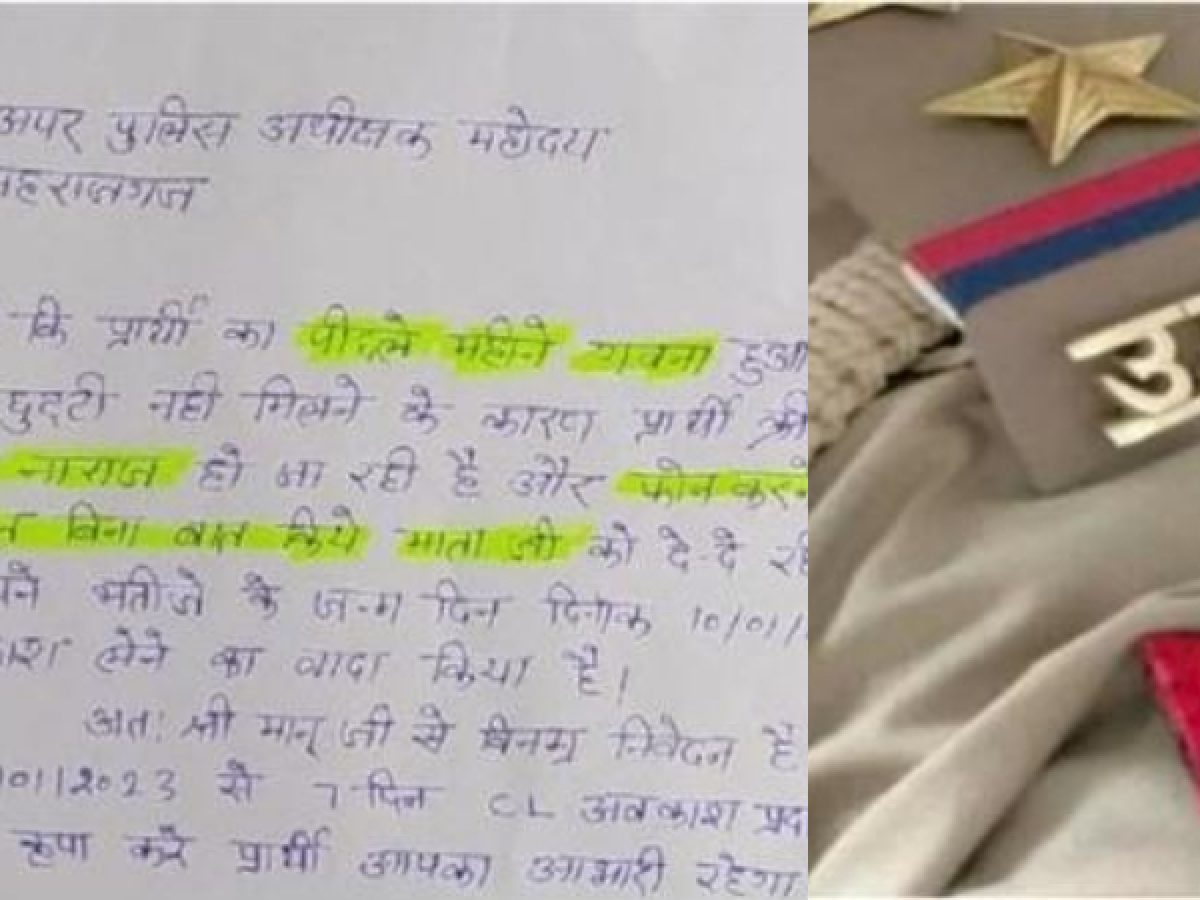 अपर पुलिस अधीक्षक महोदय
महराजगज
कि प्रार्थी का पीछले महीने गवना हुआ
छुट्टी नही मिलने के कारण प्रार्थी
नाराज हो जा रही है और फोन करने
बिना बात किये माता जी को दे-दे
भतीजे के जन्म दिन दिनांक 10/01/
होने का वादा किया है।
अतः श्री मान् जी से विनम्र निवेदन है
01/2023 से 7 दिन CL अवकाश प्रद
कृपा करे प्रार्थी आपका आभारी रहेगा
उ